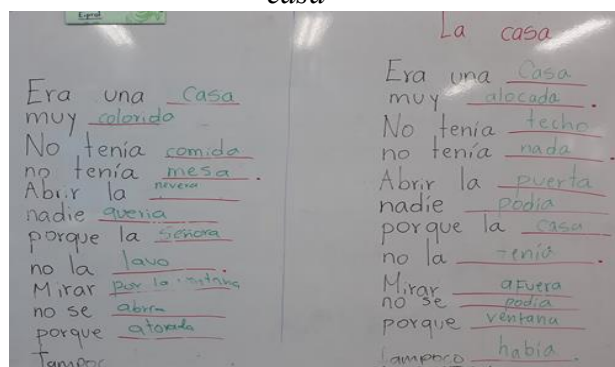 casa
Expo!
Era una Casa
muy colorida
No tenía comida
no tenía mesa.
Abrir la nevera
nadie queria
porque la Señora
no la lavo.
Mirar por la
no se
porque atorada
La casa
Era una Casa
muy alocada.
No tenía techo
no tenía nada.
Abrir la puerta
nadie podia
porque la casa
no la tenía.
Mirar afuera
no se podia
porque ventana
tampoco había.